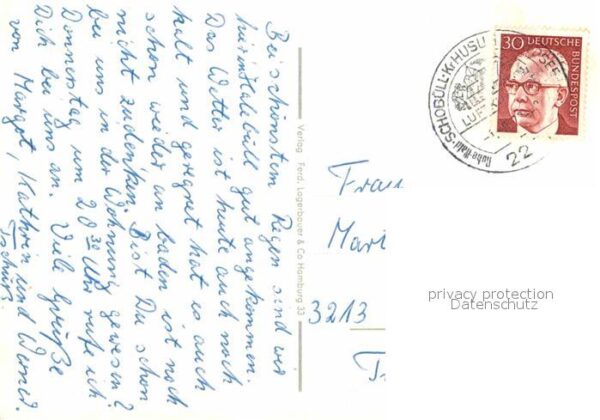 Bei schönstem Regen sind wir
hier in Halebüll gut angekommen.
Das Wetter ist heute auch noch
kalt und geregnet hat es auch
schon wieder an baden ist noch
nicht zudenken. Bist Du schon
bei uns in der Wohnung gewesen?
Donnerstag um 20 30 Uhr rufe ich
Dich bei uns an. Viele Grüße
von Margot, Kathrin und Werner.
Tschüß.
Verlag Ferd. Lagerbauer & Co Hamburg 33
30 DEUTSCHE BUNDESPOST
SCHOBÜLL · Kr HUSU
22
Frau
Mari
3213
privacy protection
Datenschutz